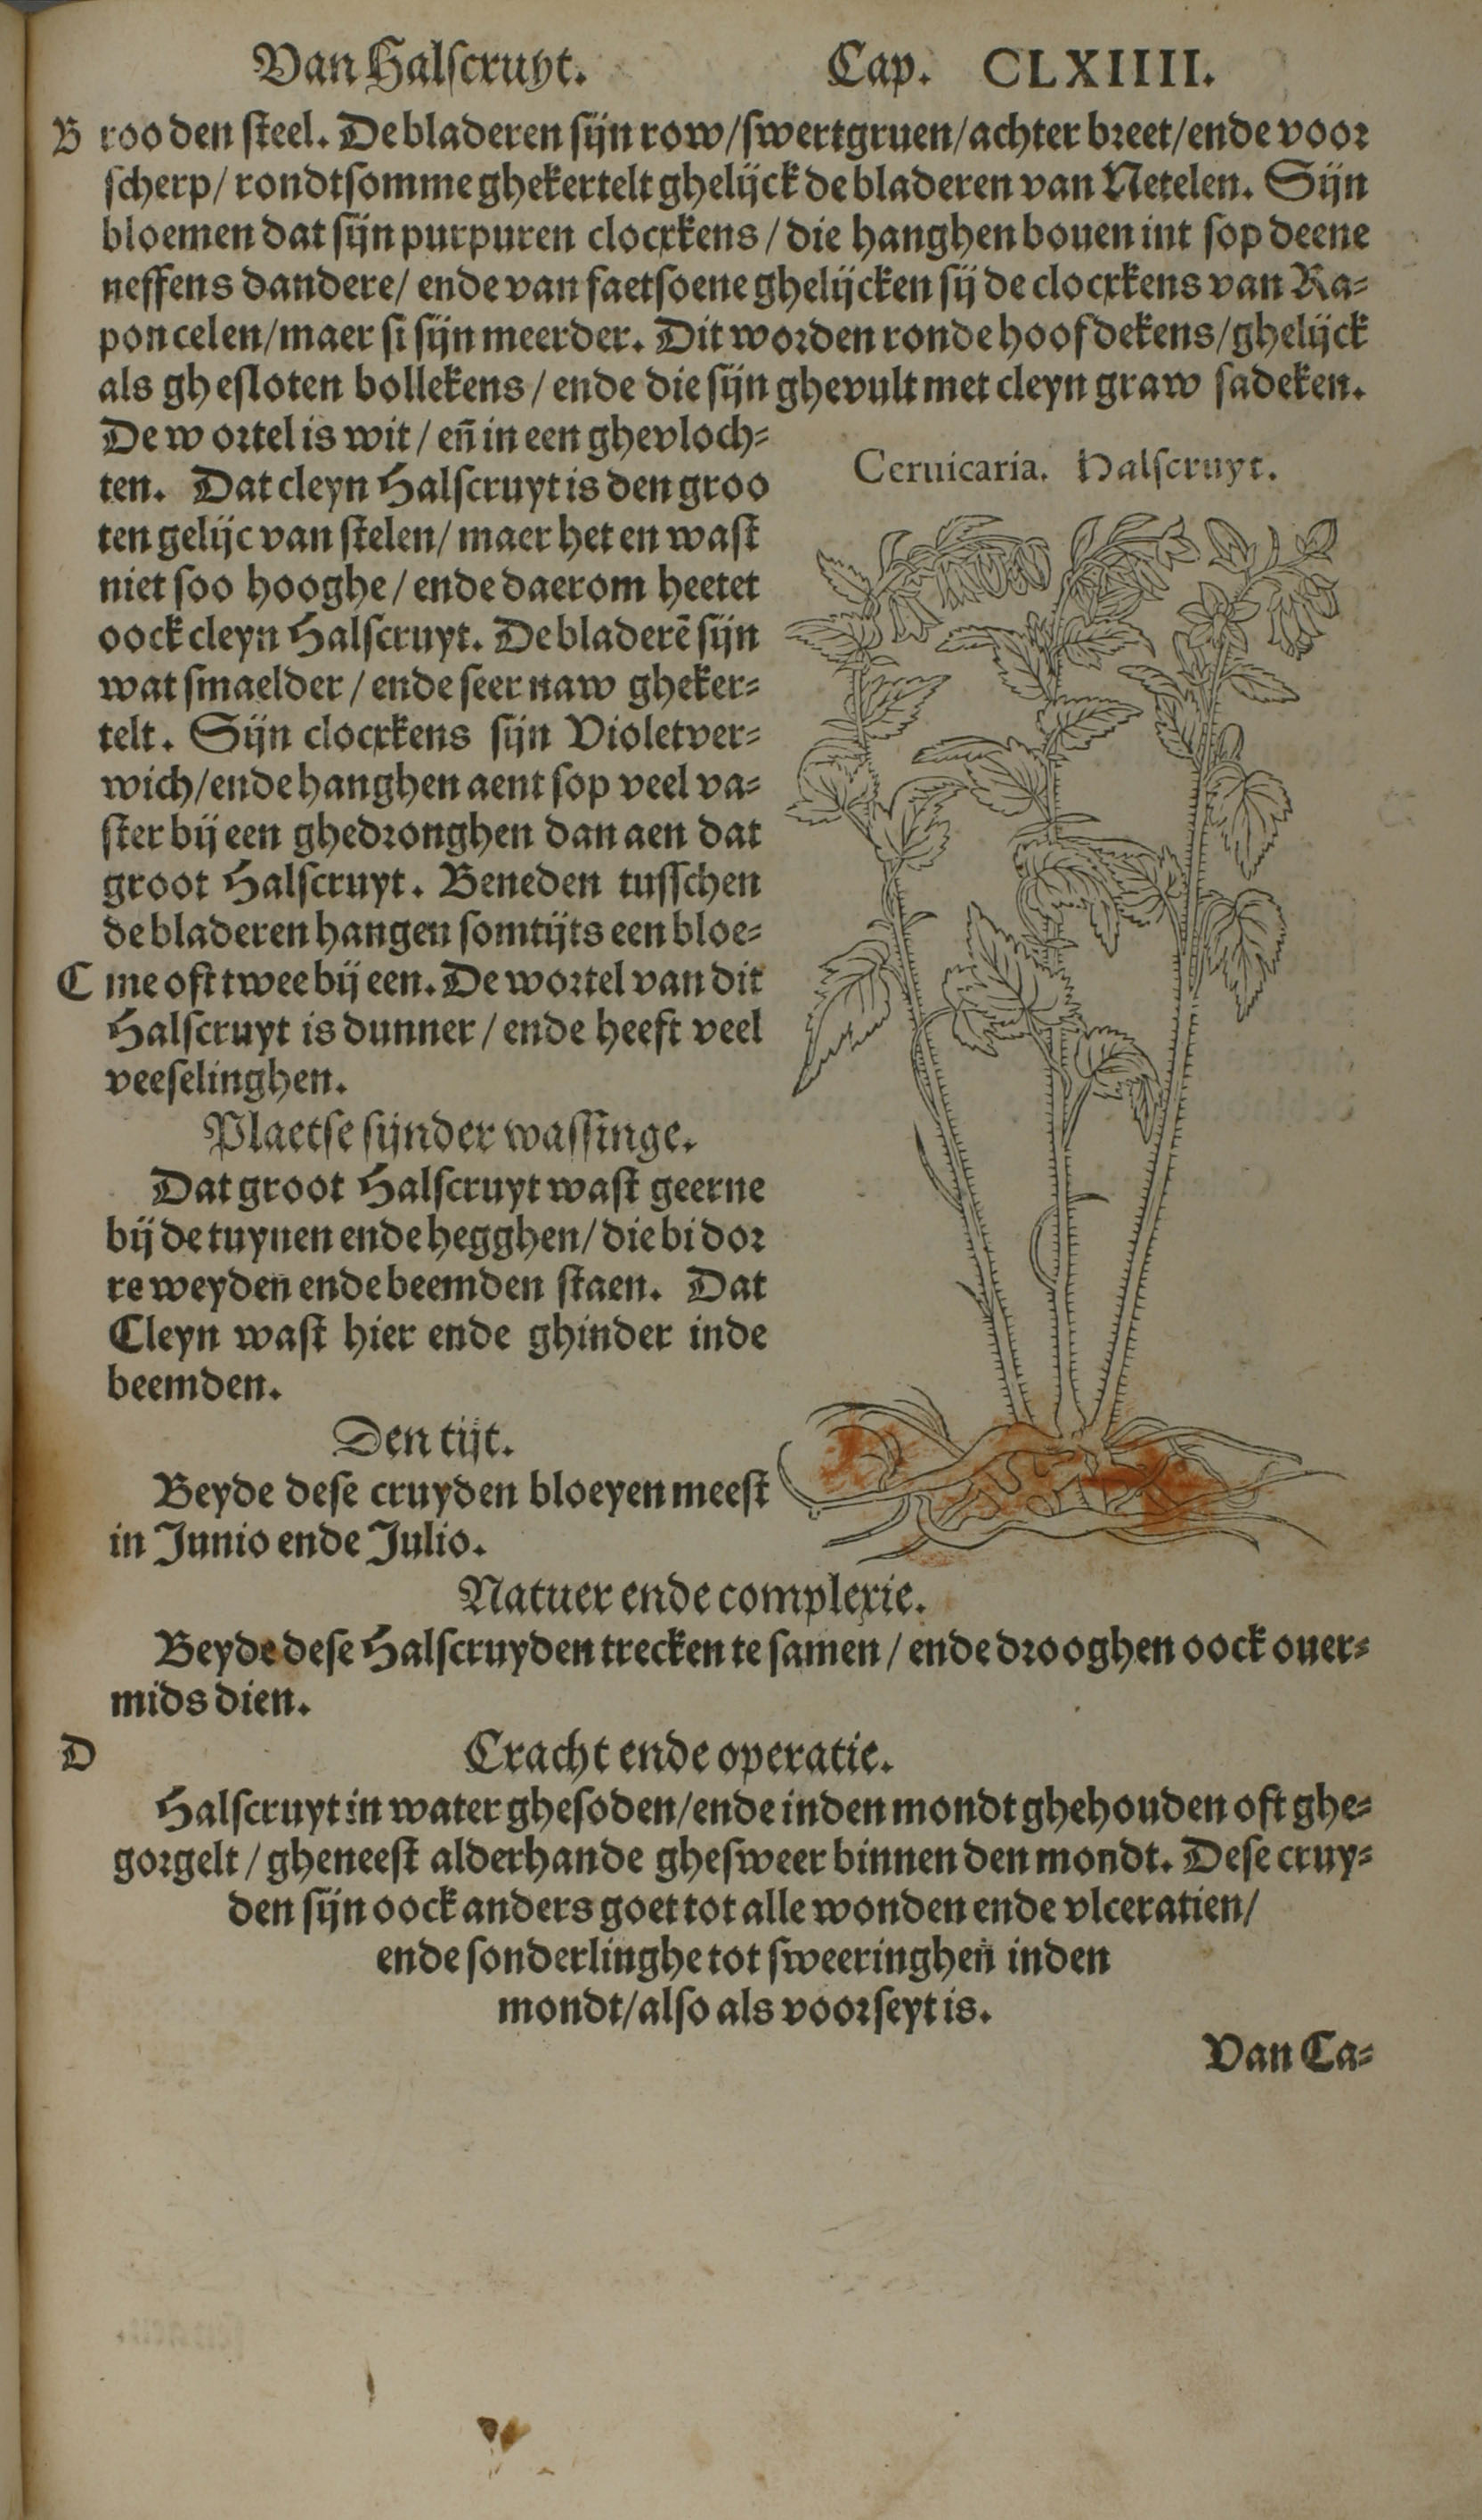 Van Halscruyt. Cap. CLXIIII.
B rooden steel. De bladeren sijn row/swertgruen/achter breet/ende voor
scherp/ rondtsomme ghekertelt ghelijck de bladeren van Netelen. Sijn
bloemen dat sijn purpuren clocxkens / die hanghen bouen int sop deene
neffens dandere/ ende van faetsoene ghelijcken sij de clocxkens van Ra-
poncelen/maer si sijn meerder. Dit worden ronde hoofdekens/ghelijck
als ghesloten bollekens / ende die sijn ghevult met cleyn graw sadeken.
De wortel is wit / eñ in een ghevloch-
ten. Dat cleyn Halscruyt is den groo
ten gelijc van stelen/ maer het en wast
niet soo hooghe / ende daerom heetet
oock cleyn Halscruyt. De bladerẽ sijn
wat smaelder / ende seer naw gheker-
telt. Sijn clocxkens sijn Violetver-
wich/ende hanghen aent sop veel va-
ster bij een ghedronghen dan aen dat
groot Halscruyt. Beneden tusschen
de bladeren hangen somtijts een bloe-
C me oft twee bij een. De wortel van dit
Halscruyt is dunner / ende heeft veel
veeselinghen.
Ceruicaria. Halscruyt.
Plaetse sijnder wassinge.
Dat groot Halscruyt wast geerne
bij de tuynen ende hegghen/ die bi dor
re weyden ende beemden staen. Dat
Cleyn wast hier ende ghinder inde
beemden.
Den tijt.
Beyde dese cruyden bloeyen meest
in Junio ende Julio.
Natuer ende complexie.
Beyde dese Halscruyden trecken te samen / ende drooghen oock ouer-
mids dien.
D Cracht ende operatie.
Halscruyt in water ghesoden/ende inden mondt ghehouden oft ghe-
gorgelt / gheneest alderhande ghesweer binnen den mondt. Dese cruy-
den sijn oock anders goet tot alle wonden ende vlceratien/
ende sonderlinghe tot sweeringhen inden
mondt/also als voorseyt is.
Van Ca-